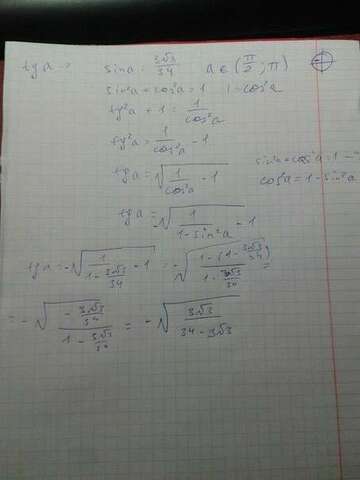 tg a → sin a = 3√3/34 a ∈ (π/2; π)
sin²a + cos²a = 1 1 - cos²a
tg²a + 1 = 1/cos²a
tg²a = 1/cos²a - 1
tg a = √(1/cos²a - 1) sin²a + cos²a = 1
cos²a = 1 - sin²a
tg a = -√(1/(1 - sin²a) - 1)
tg a = -√(1/(1 - 3√3/34) - 1) = -√((1 - (1 - 3√3/34))/(1 - 3√3/34)) =
= -√((-3√3/34)/(1 - 3√3/34)) = -√(3√3/(34 - 3√3))